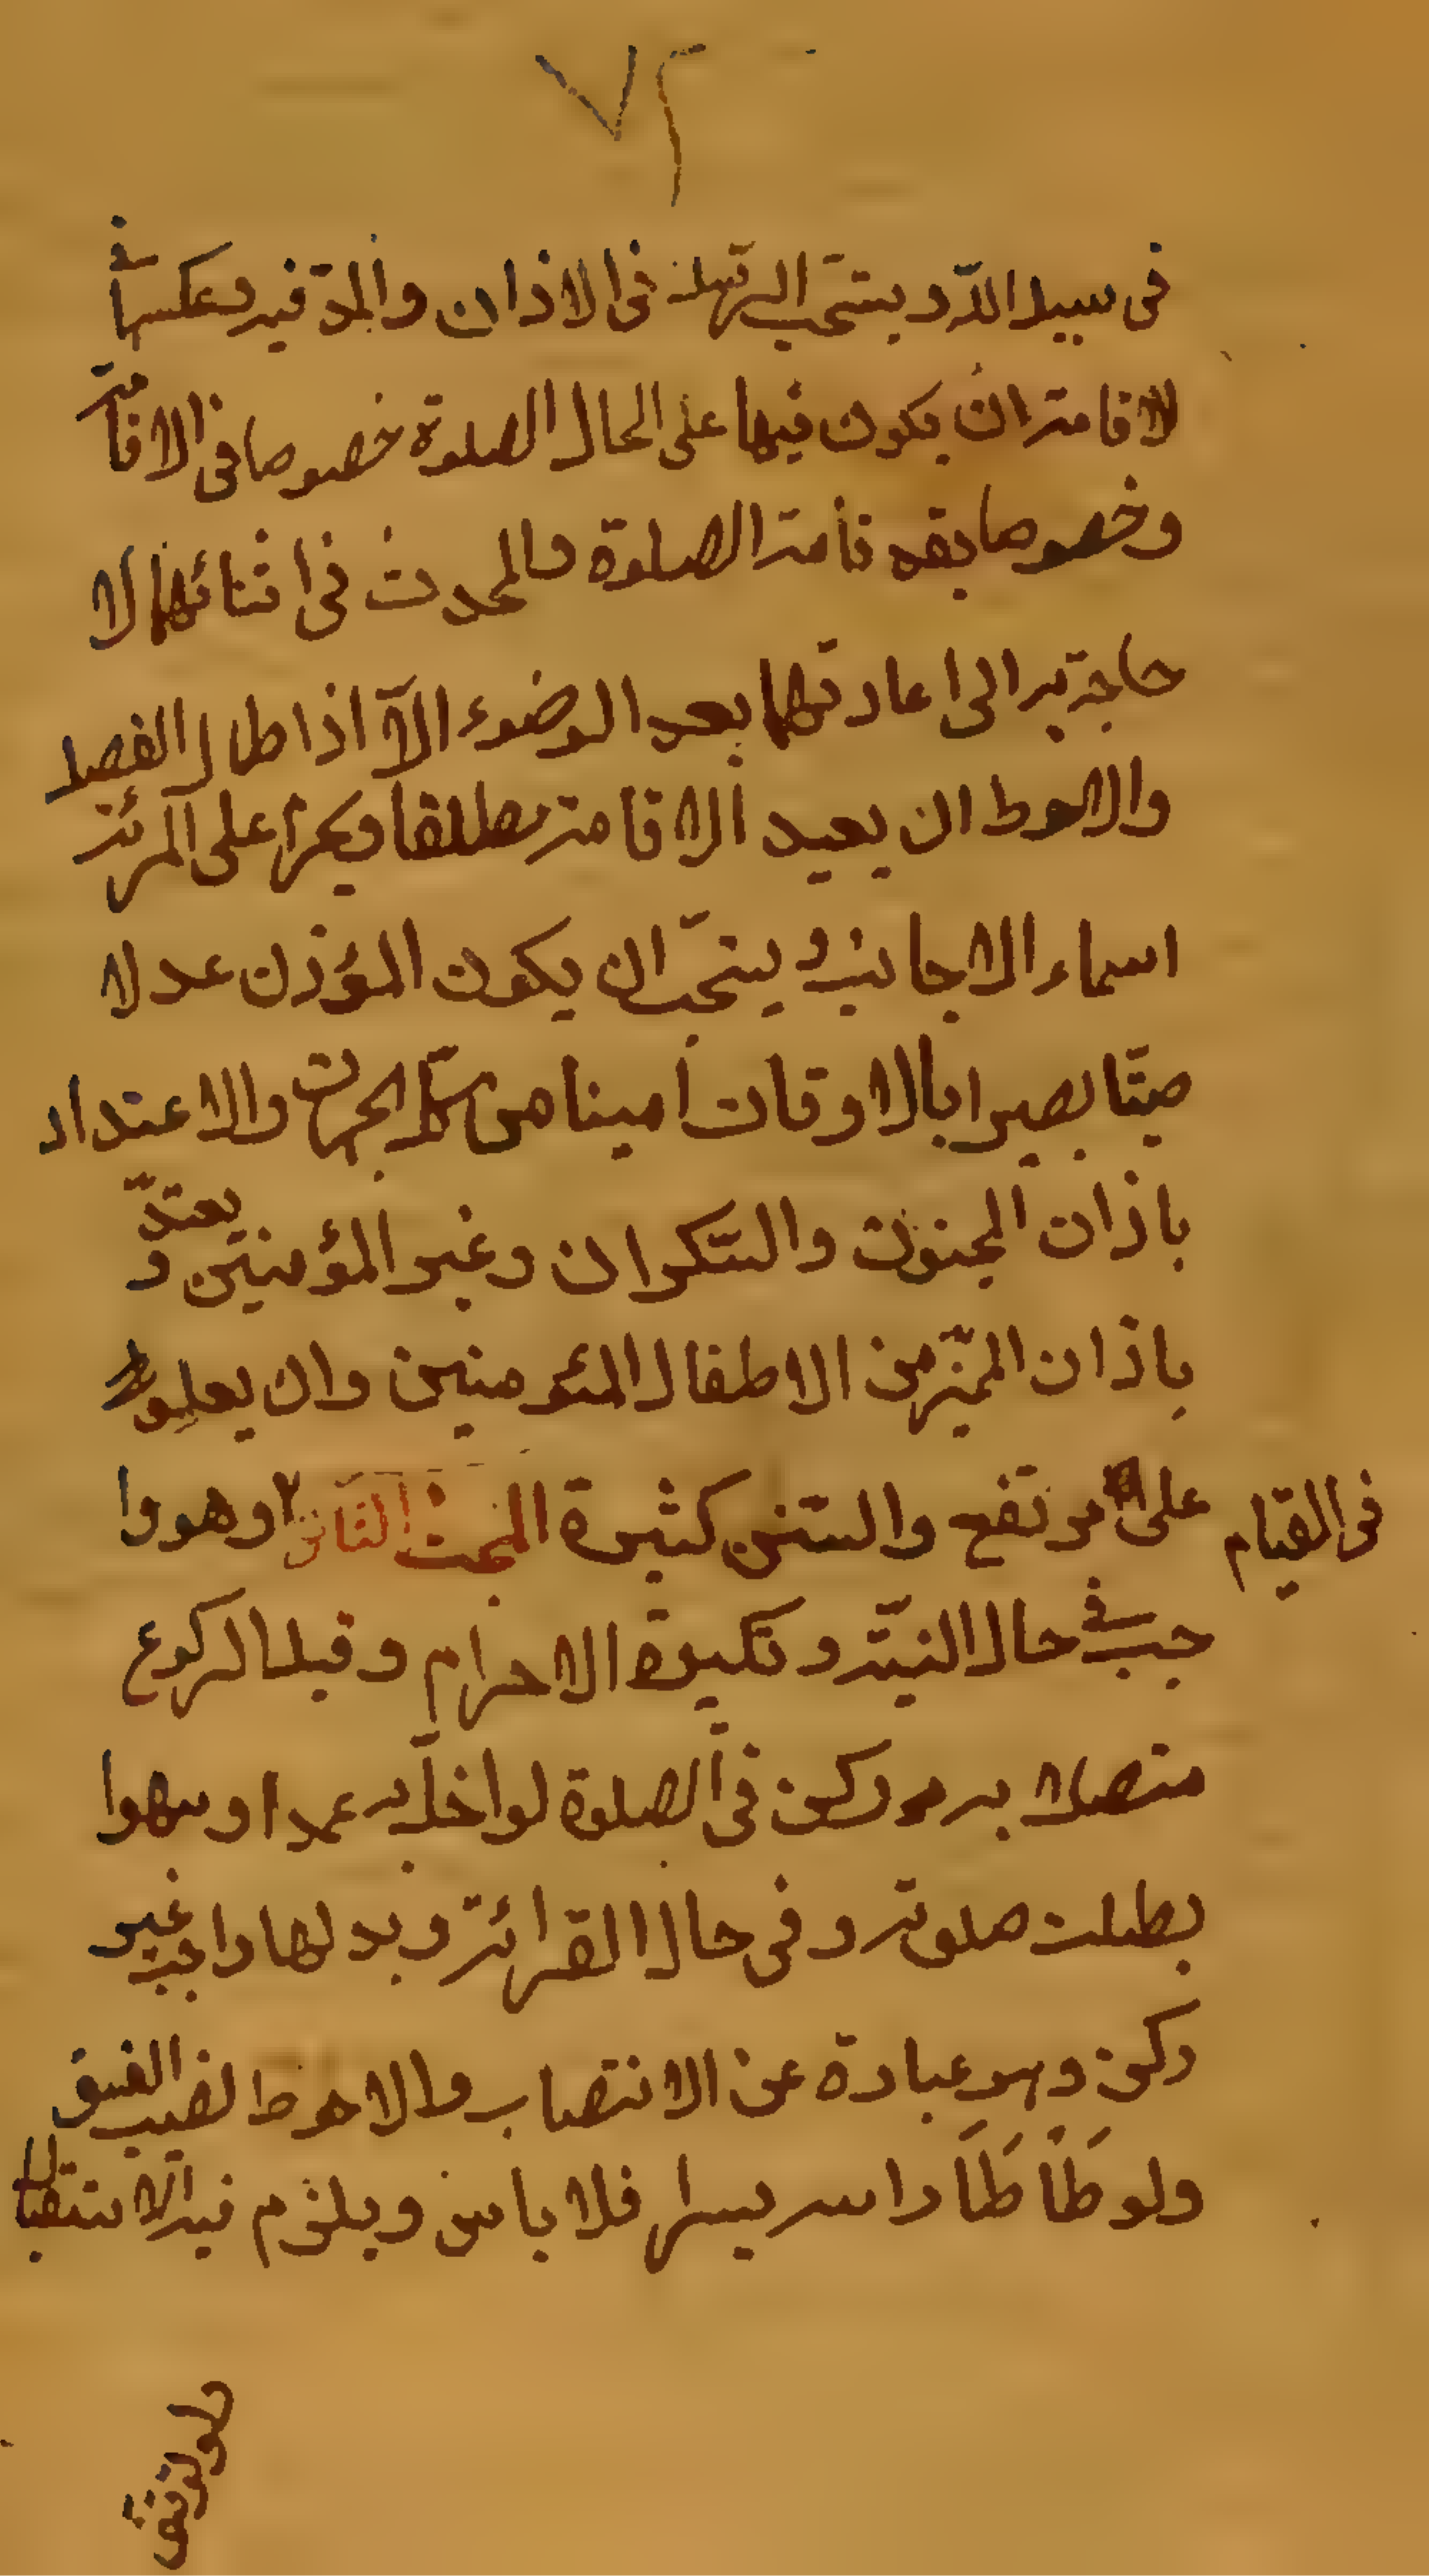 ٧٢
في سبيل اللّه ويستحّب التّرتيل في الاذان والمدّ فيه وعكسها في
الاقامة ان يكون فيها على الحال الصلوة خصوصا في الاقامة
وخصوصا بقد قامة الصلوة والمحدث في اثنائهما لا
حاجة به الى اعادتهما بعد الوضوء الّا اذا طال الفصل
والاحوط ان يعيد الاقامة مطلقا ويحرم على المرئة
اسماء الاجانب ويستحّب ان يكون المؤذن عدلا
صيّتا بصيرا بالاوقات امينا من كلّ الجهات والاعتداد
باذان المجنون والسّكران وغير المؤمنين ويعتدّ
باذان المميّز من الاطفال المئومنين وان يعلو
على مرتفع والسنن كثيرة المبحث الثاني في القيام وهو وا
جب في حال النيّة وتكبيرة الاحرام وقبل الركوع
متصلا به ركن في الصلوة لو اخلّ به عمدا او سهوا
بطلت صلوته وفي حال القرائة وبدلها واجب غير
ركن وهو عبارة عن الانتصاب والاحوط نصب العنق
ولو طَأطَأ راسه يسيرا فلا باس ويلزم فيه الاستقلال